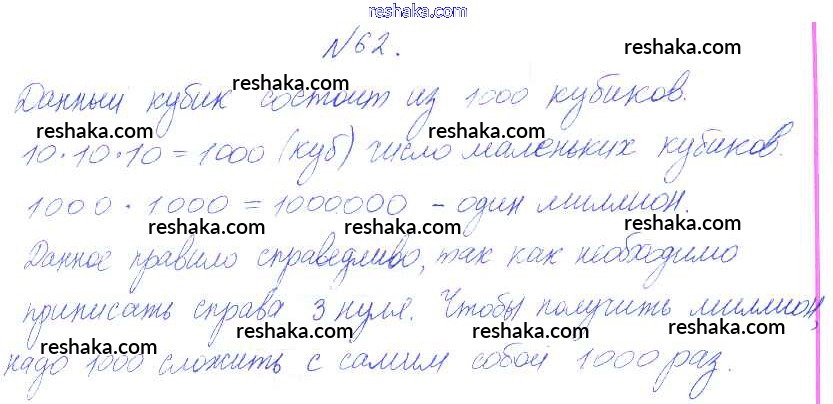 reshaka.com
№62.
Данный кубик состоит из 1000 кубиков.
reshaka.com reshaka.com reshaka.com
reshaka.com reshaka.com reshaka.com
10·10·10=1000 (куб) число маленьких кубиков.
1000·1000=1000000 – один миллион.
reshaka.com reshaka.com reshaka.com
Данное правило справедливо, так как необходимо
приписать справа 3 нуля. Чтобы получить миллион,
reshaka.com reshaka.com reshaka.com
надо 1000 сложить с самим собой 1000 раз.